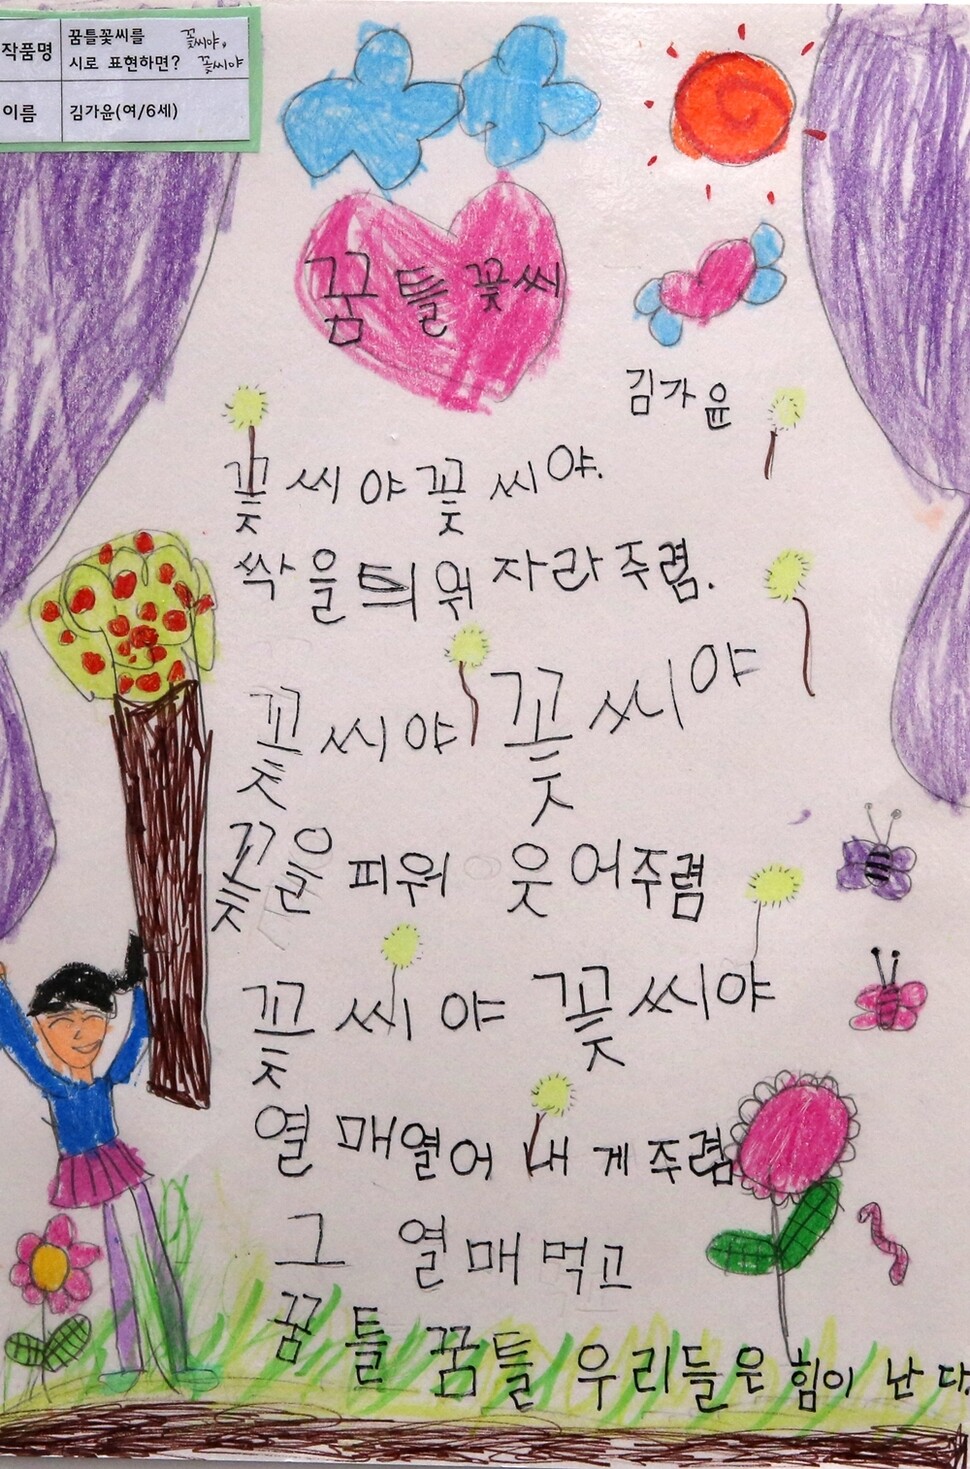 작품명 꿈틀꽃씨를 시로 표현하면? 꽃씨야, 꽃씨야
이름 김가윤(여/6세)
꿈틀꽃씨
김가윤
꽃씨야 꽃씨야.
싹을 틔워 자라주렴.
꽃씨야 꽃씨야
꽃을 피워 웃어주렴
꽃씨야 꽃씨야
열매열어 내게주렴
그 열매먹고
꿈틀꿈틀 우리들은 힘이 난다.